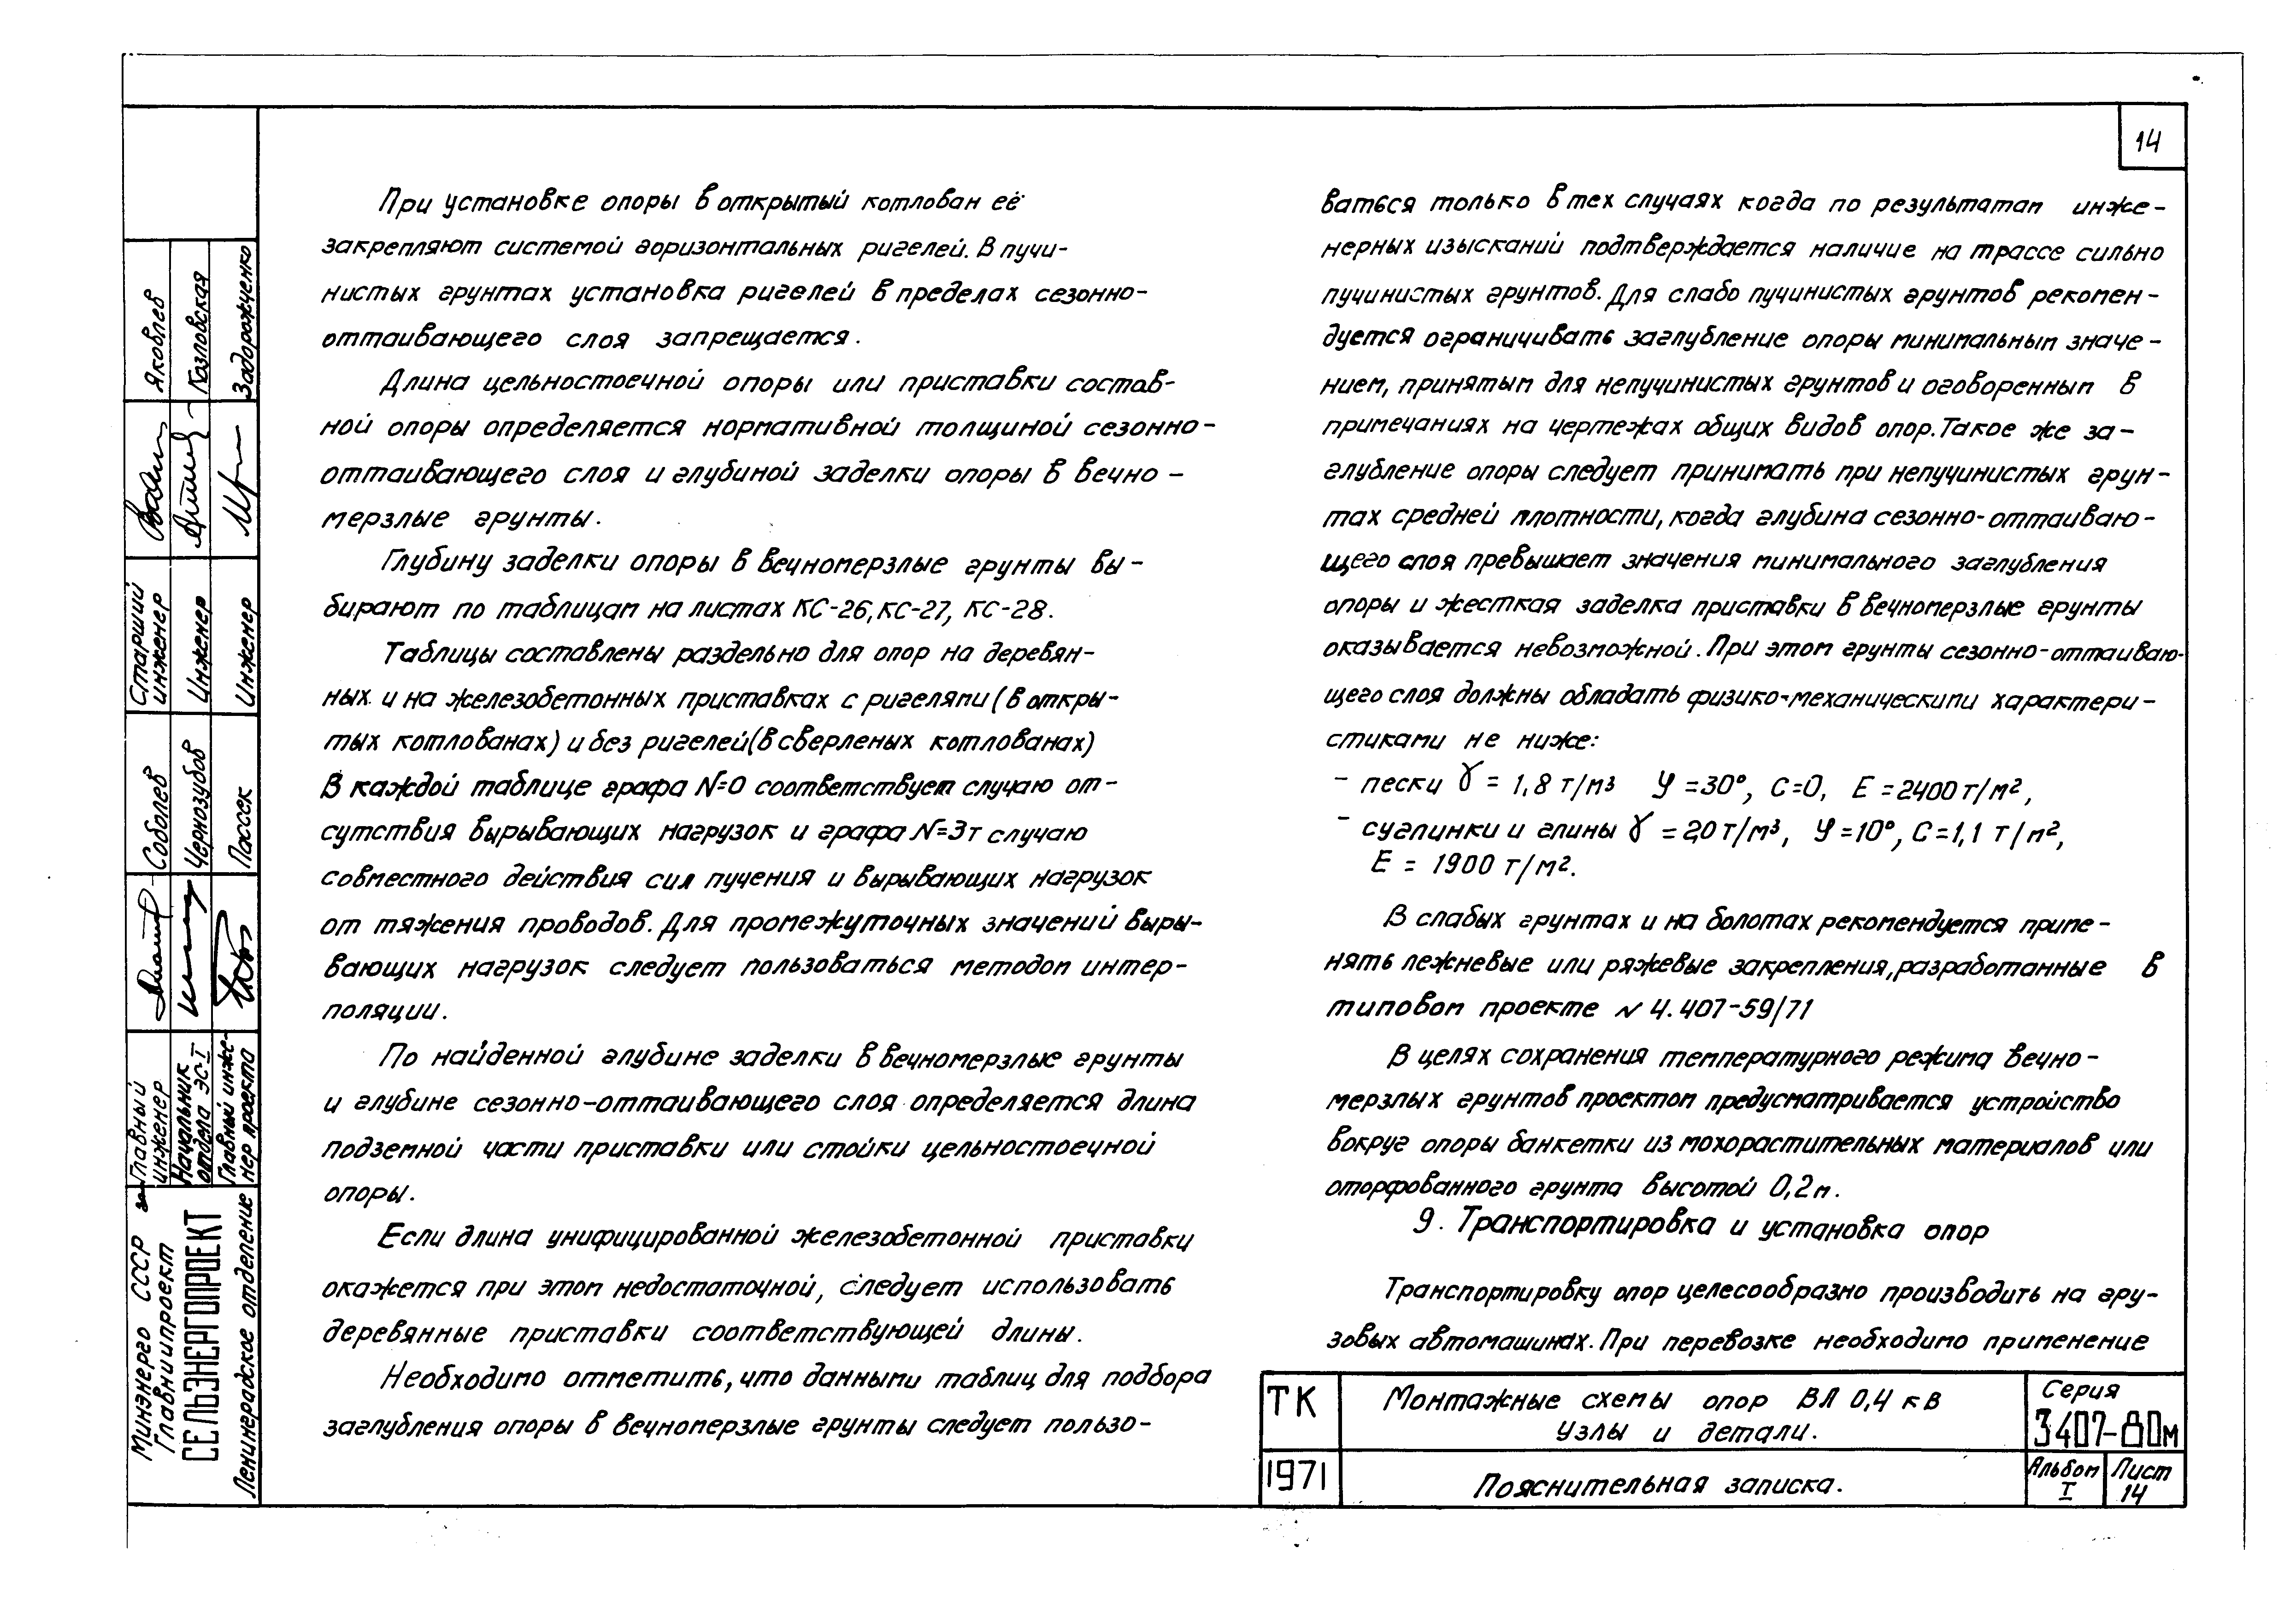 14
При установке опоры в открытый котлован её
закрепляют системой горизонтальных ригелей. В пучи-
нистых грунтах установка ригелей в пределах сезонно-
оттаивающего слоя запрещается.
Длина цельностоечной опоры или приставки состав-
ной опоры определяется нормативной толщиной сезонно-
оттаивающего слоя и глубиной заделки опоры в вечно-
мерзлые грунты.
Глубину заделки опоры в вечномерзлые грунты вы-
бирают по таблицам на листах КС-26, КС-27, КС-28.
Таблицы составлены раздельно для опор на деревян-
ных и на железобетонных приставках с ригелями (в откры-
тых котлованах) и без ригелей (в сверленых котлованах)
В каждой таблице графа N=0 соответствует случаю от-
сутствия вырывающих нагрузок и графа N=3т случаю
совместного действия сил пучения и вырывающих нагрузок
от тяжения проводов. Для промежуточных значений выры-
вающих нагрузок следует пользоваться методом интер-
поляции.
По найденной глубине заделки в вечномерзлые грунты
и глубине сезонно-оттаивающего слоя определяется длина
подземной части приставки или стойки цельностоечной
опоры.
Если длина унифицированной железобетонной приставки
окажется при этом недостаточной, следует использовать
деревянные приставки соответствующей длины.
Необходимо отметить, что данными таблиц для подбора
заглубления опоры в вечномерзлые грунты следует пользо-
ваться только в тех случаях когда по результатам инже-
нерных изысканий подтверждается наличие на трассе сильно
пучинистых грунтов. Для слабо пучинистых грунтов рекомен-
дуется ограничивать заглубление опоры минимальным значе-
нием, принятым для непучинистых грунтов и оговоренным в
примечаниях на чертежах общих видов опор. Такое же за-
глубление опоры следует принимать при непучинистых грун-
тах средней плотности, когда глубина сезонно-оттаиваю-
щего слоя превышает значения минимального заглубления
опоры и жесткая заделка приставки в вечномерзлые грунты
оказывается невозможной. При этом грунты сезонно-оттаиваю-
щего слоя должны обладать физико-механическими характери-
стиками не ниже:
- пески γ = 1,8 т/м³ φ = 30°, С=0, Е = 2400 т/м²,
- суглинки и глины γ = 2,0 т/м³, φ = 10°, С=1,1 т/м²,
Е = 1900 т/м².
В слабых грунтах и на болотах рекомендуется приме-
нять лежневые или ряжевые закрепления, разработанные в
типовом проекте N 4.407-59/71
В целях сохранения температурного режима вечно-
мерзлых грунтов проектом предусматривается устройство
вокруг опоры банкетки из мохорастительных материалов или
оторфованного грунта высотой 0,2м.
9. Транспортировка и установка опор
Транспортировку опор целесообразно производить на гру-
зовых автомашинах. При перевозке необходимо применение
ТК
1971
Монтажные схемы опор ВЛ 0,4 кВ
Узлы и детали.
Пояснительная записка.
Серия
3407-80м
Альбом
I
Лист
14
Минэнерго СССР
Главниипроект
СЕЛЬЭНЕРГОПРОЕКТ
Ленинградское отделение
Главный
инженер
Начальник
отдела ЭС-I
Главный инже-
нер проекта
Соболев
Чернозубов
Пассек
Старший
инженер
Инженер
Инженер
Яковлев
Казловская
Задорожченко